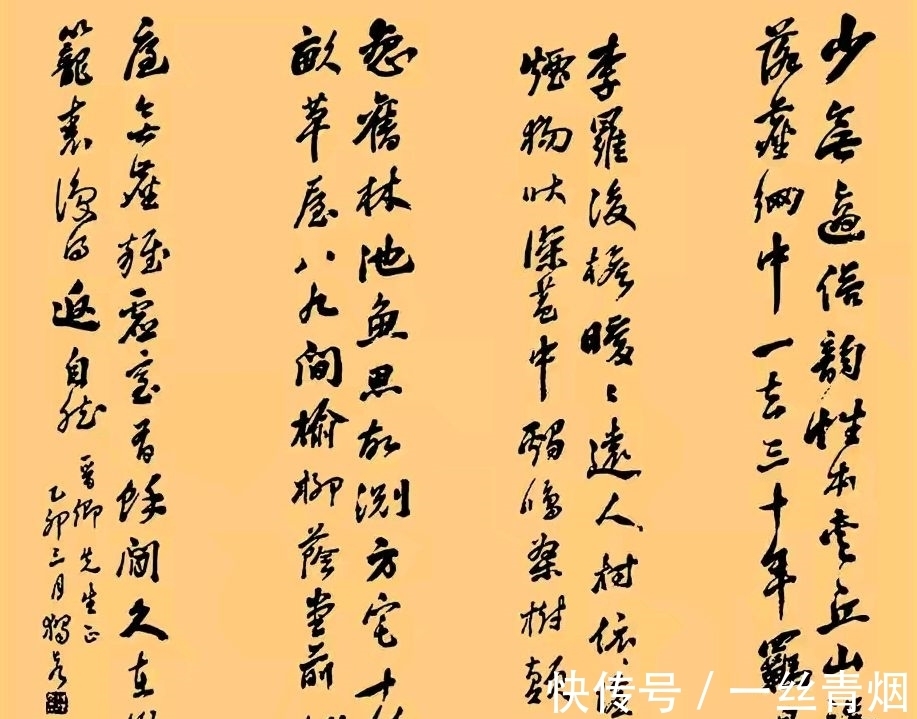 少無適俗韻性本愛丘山
落塵網中一去三十年羈
李羅後檐曖〻遠人村依
煙狗吠深巷中鷄鳴桑樹顛
戀舊林池魚思故淵方宅十
畝草屋八九間榆柳蔭堂前
戶庭無塵雜虛室有餘閒久在
籠裏復得返自然
晉卿先生正
乙卯三月獨秀
快传号 / 一丝青烟